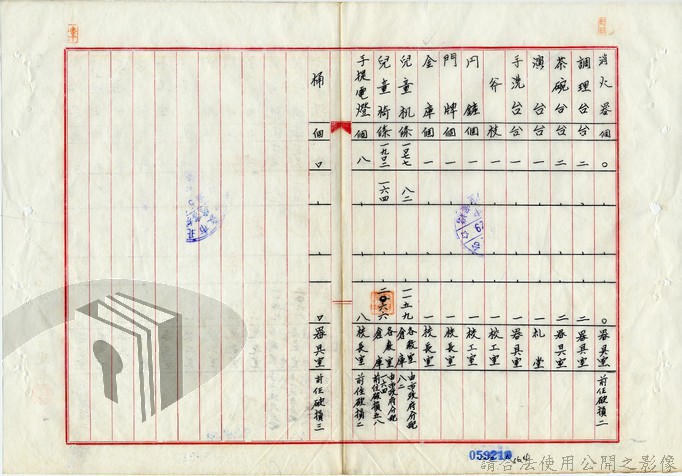 消火器 個 〇 〇 器具室 前任破損二
調理台 台 二 二 器具室
茶碗台 台 二 二 器具室
演台 台 一 一 礼堂
手洗台 台 一 一 器具室
斧 枝 一 一 校工室
円鍬 個 一 一 校工室
門牌 個 一 一 校長室
金庫 個 一 一 校長室
兒童机 條 一〇七七 八二 一一五九 各教室 倉庫 由市政府分配八二
兒童椅 條 一九〇二 一六四 二〇六六 各教室 倉庫 由市政府分配一六四 前任破損五八
手提電燈 個 八 八 校長室 前任破損二
桶 個 〇 〇 器具室 前任破損三
請合法使用公開之影像